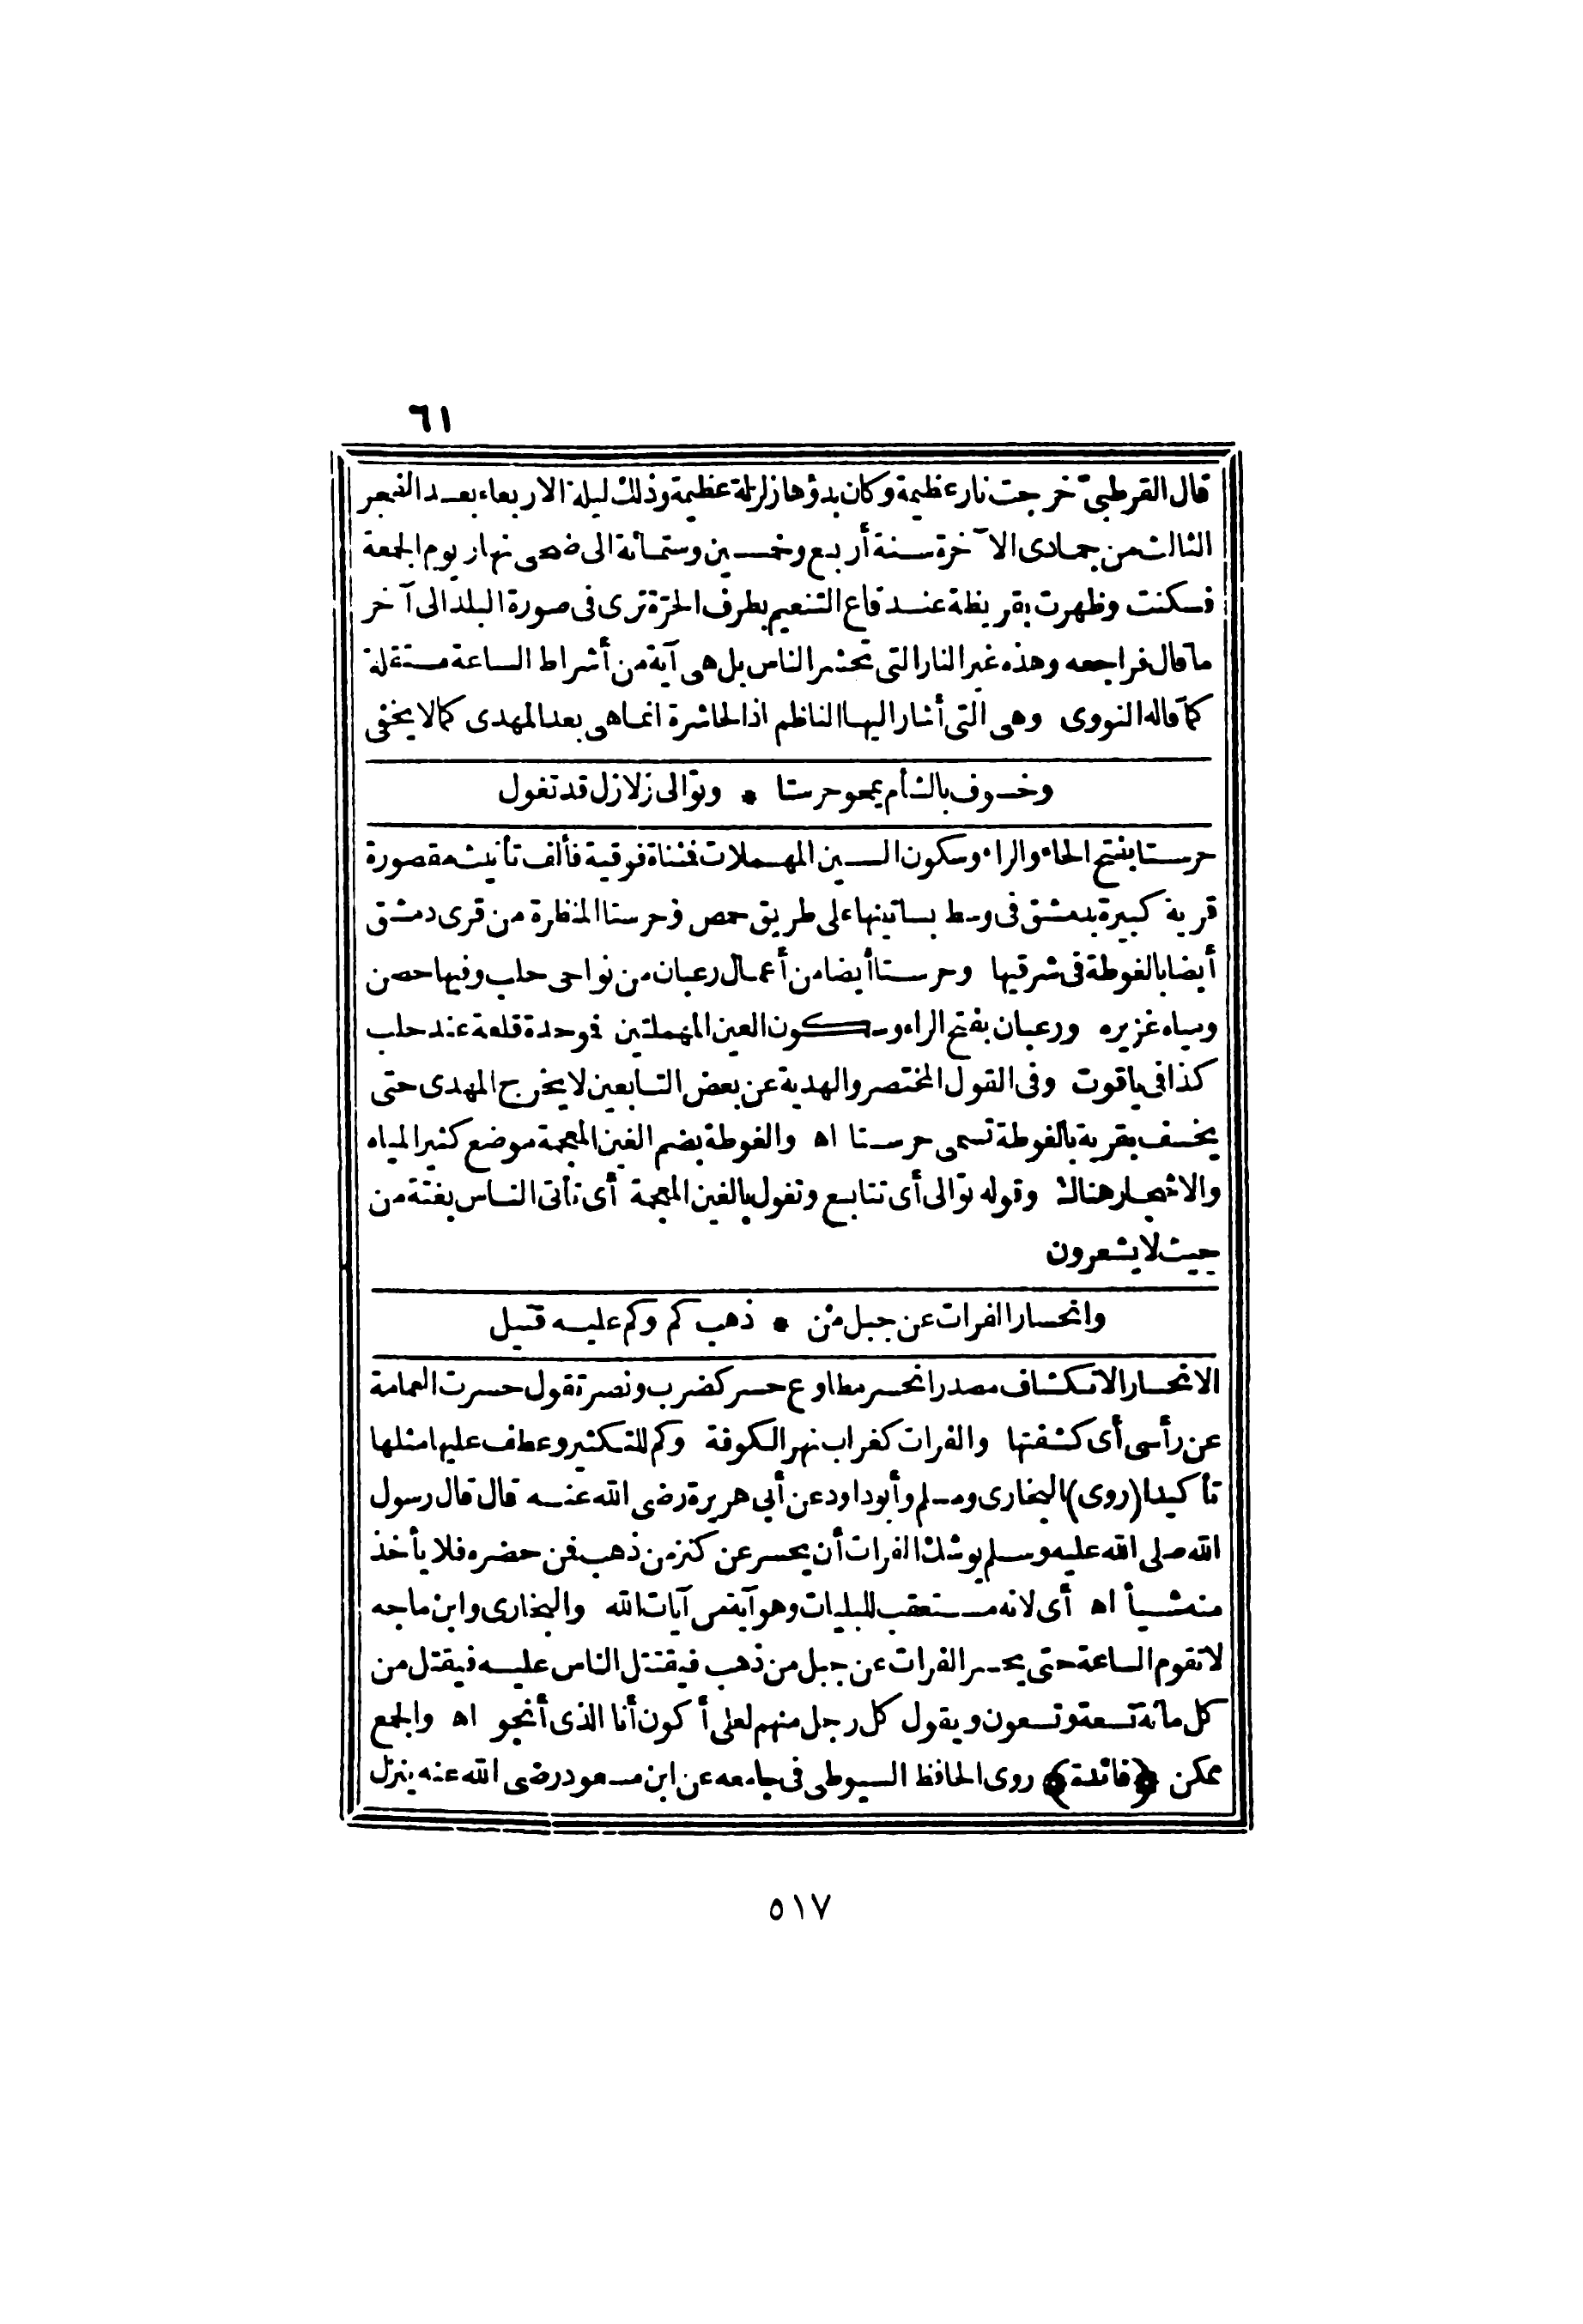 ٦١
قال القرطبىّ خرجت نار عظيمة وكان بدؤها زلزلة عظيمة وذلك ليلة الاربعاء بعد الفجر
الثالث من جمادى الآخرة سنة أربع وخمسين وستمائة الى ضحى نهار يوم الجمعة
فسكنت وظهرت بقريظة عند قاع التنعيم بطرف الحرّة ترى فى صورة البلد الى آخر
ما قال فراجعه وهذه غير النار التى تحشر الناس بل هى آية من أشراط الساعة مستقلة
كما قاله النووى وهى التى أشار اليها الناظم اذ الحاشرة انما هى بعد المهدى كما لا يخفى
وخسوف بالشأم يمحو حرستا * وتوالى زلازل قد تغول
حرستا بفتح الحاء والراء وسكون السين المهملات فمثناة فوقية فألف تأنيث مقصورة
قرية كبيرة بدمشق فى وسط بساتينها على طريق حمص وحرستا المنظرة من قرى دمشق
أيضا بالغوطة فى شرقيها وحرستا أيضا من أعمال رعبان من نواحى حلب وفيها حصن
ومياه غزيره ورعبان بفتح الراء وسكون العين المهملتين فموحدة قلعة عند حلب
كذا فى ياقوت وفى القول المختصر والهدية عن بعض التابعين لا يخرج المهدى حتى
يخسف بقرية بالغوطة تسمى حرستا اه والغوطة بضم الغين المعجمة موضع كثير المياه
والاشجار هناك وقوله توالى أى تتابع وتغول بالغين المعجمة أى تأتى الناس بغتة من
حيث لا يشعرون
وانحسار الفرات عن جبل من * ذهب كم وكم عليه قتيل
الانحسار الانكشاف مصدر انحسر مطاوع حسر كضرب ونصر تقول حسرت العمامة
عن رأسى أى كشفتها والفرات كغراب نهر الكوفة وكم للتكثير وعطف عليها مثلها
تأكيدا (روى) البخارى ومسلم وأبو داود عن أبى هريرة رضى الله عنه قال قال رسول
الله صلى الله عليه وسلم يوشك الفرات أن يحسر عن كنز من ذهب فمن حضره فلا يأخذ
منه شيأ اه أى لانه مستعقب للبليات وهو آية من آيات الله والبخارى وابن ماجه
لا تقوم الساعة حتى يحسر الفرات عن جبل من ذهب فيقتتل الناس عليه فيقتل من
كل مائة تسعة وتسعون ويقول كل رجل منهم لعلى أكون أنا الذى أنجو اه والجمع
ممكن ﴿فائدة﴾ روى الحافظ السيوطى فى جامعه عن ابن مسعود رضى الله عنه ينزل
٥١٧